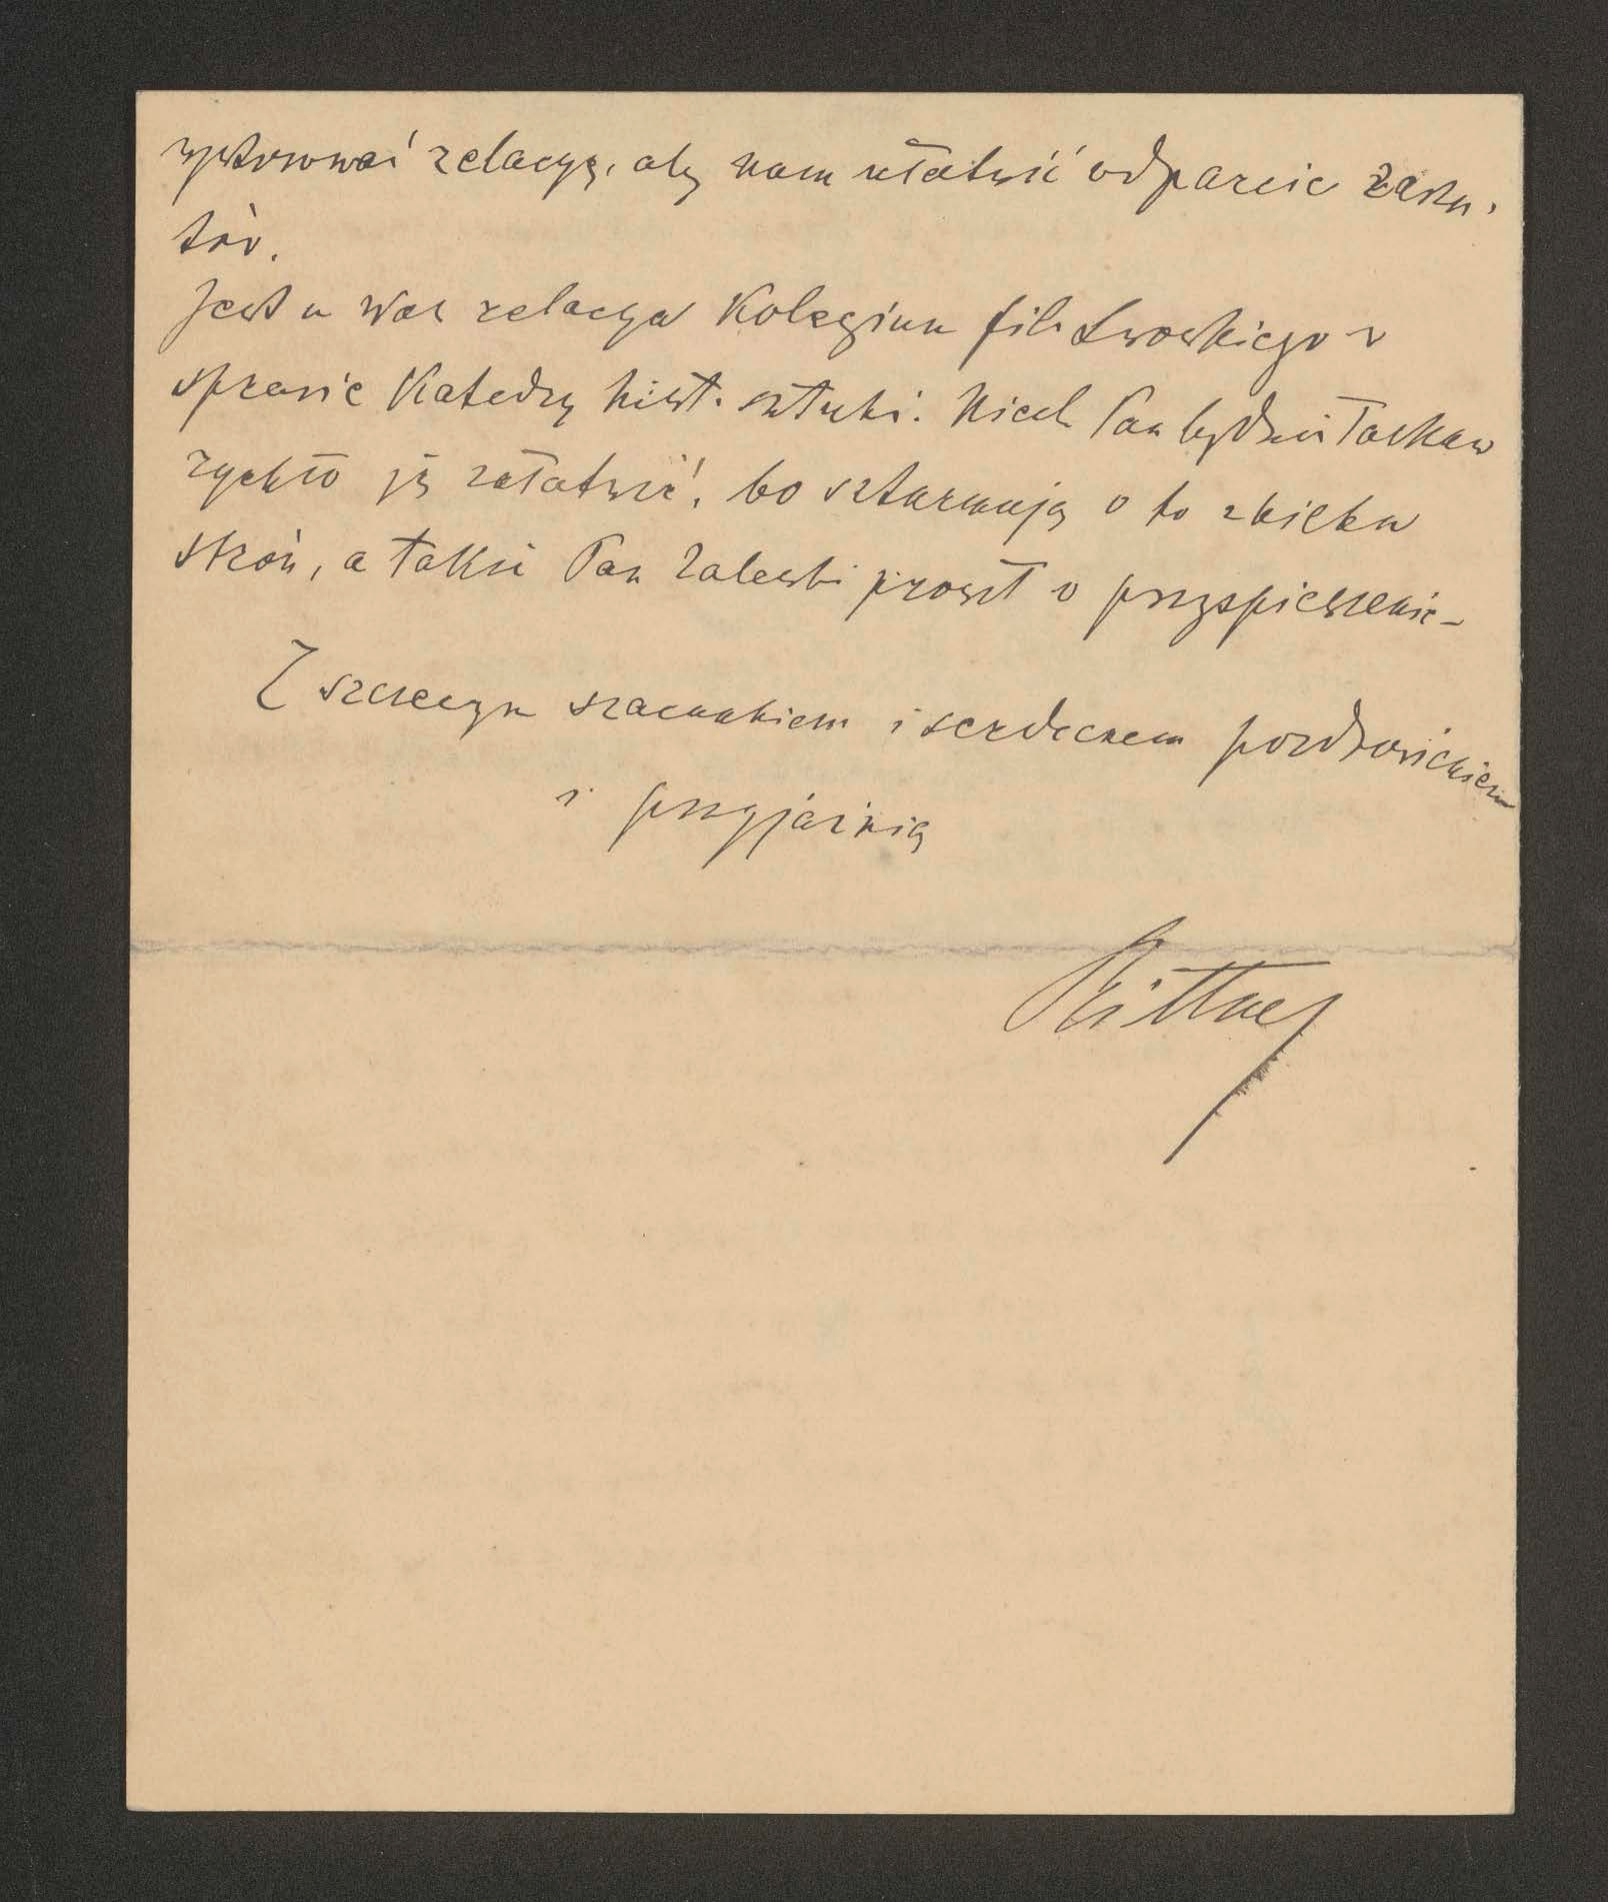 wystosować relacyę, aby nam ułatwić odparcie zarzu-
tów.
Jest u Was relacya Kolegium fil. Lwowskiego w
sprawie Katedry hist. sztuki. Niech Pan będzie łaskaw
rychło ją załatwić, bo szturmują o to z kilku
stron, a także Pan Zaleski prosił o przyspieszenie –
Z szczerym szacunkiem i serdecznem pozdrowieniem
i przyjaźnią
Rittner